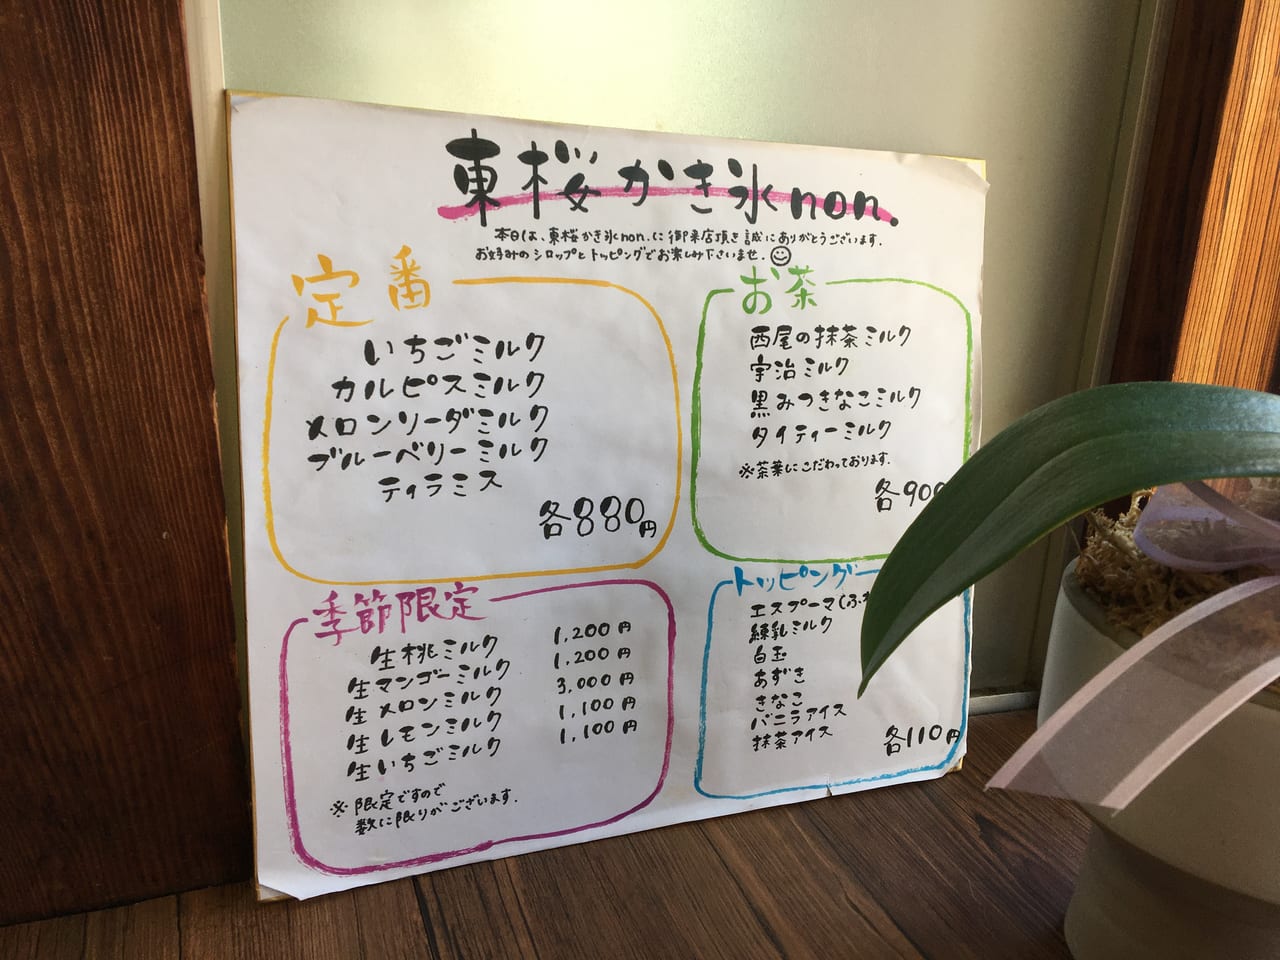 東桜かき氷non.
本日は、東桜かき氷non.に御来店頂き誠にありがとうございます.
お好みのシロップとトッピングでお楽しみ下さいませ.
定番
いちごミルク
カルピスミルク
メロンソーダミルク
ブルーベリーミルク
ティラミス
各880円
お茶
西尾の抹茶ミルク
宇治ミルク
黒みつきなこミルク
タイティーミルク
※茶葉にこだわっております.
各900
季節限定
生桃ミルク 1,200円
生マンゴーミルク 1,200円
生メロンミルク 3,000円
生レモンミルク 1,100円
生いちごミルク 1,100円
※限定ですので
数に限りがございます.
トッピング
エスプーマ(ふわ
練乳ミルク
白玉
あずき
きなこ
バニラアイス
抹茶アイス
各110円